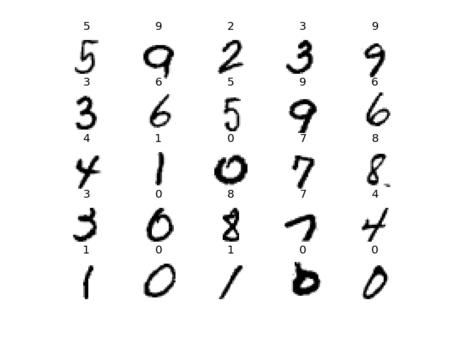 5 9 2 3 9
5 9 2 3 9
3 6 5 9 6
3 6 5 9 6
4 1 0 7 8
4 1 0 7 8
3 0 8 7 4
3 0 8 7 4
1 0 1 0 0
1 0 1 0 0